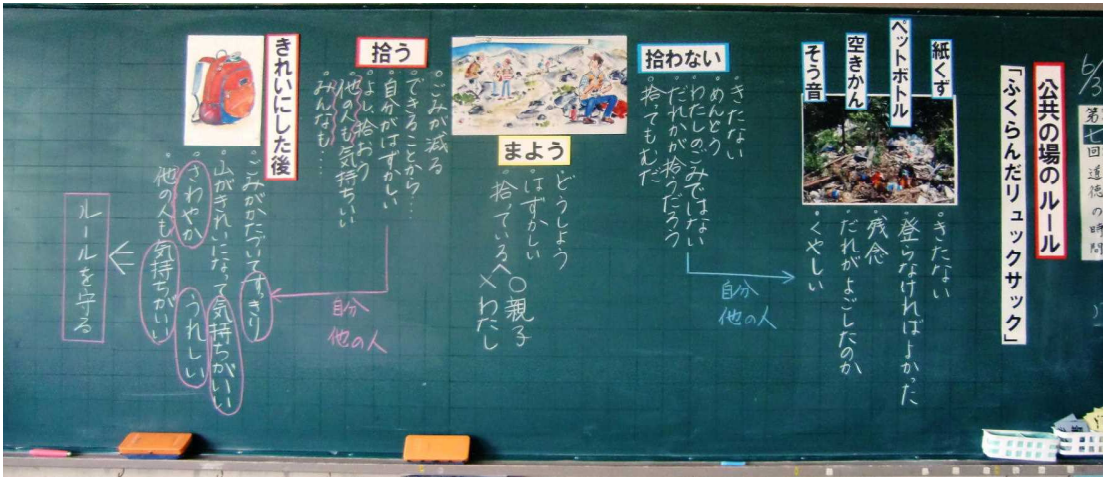 6/3
第七回道徳の時間
公共の場のルール
「ふくらんだリュックサック」
紙くず
ペットボトル
空きかん
そう音
・きたない
登らなければよかった
残念
だれがよごしたのか
・くやしい
拾わない
・きたない
・めんどう
・わたしのごみではない
・だれかが拾うだろう
・拾ってもむだ
自分
他の人
まよう
どうしよう
・はずかしい
・拾っている人 ○親子
×わたし
拾う
・ごみが減る
・できることから…
・自分がはずかしい
・よし、拾おう
・他の人も気持ちいい
・みんなも…
自分
他の人
きれいにした後
・ごみがかたづいてすっきり
・山がきれいになって気持ちがいい
・さわやか うれしい
・他の人も気持ちがいい
ルールを守る